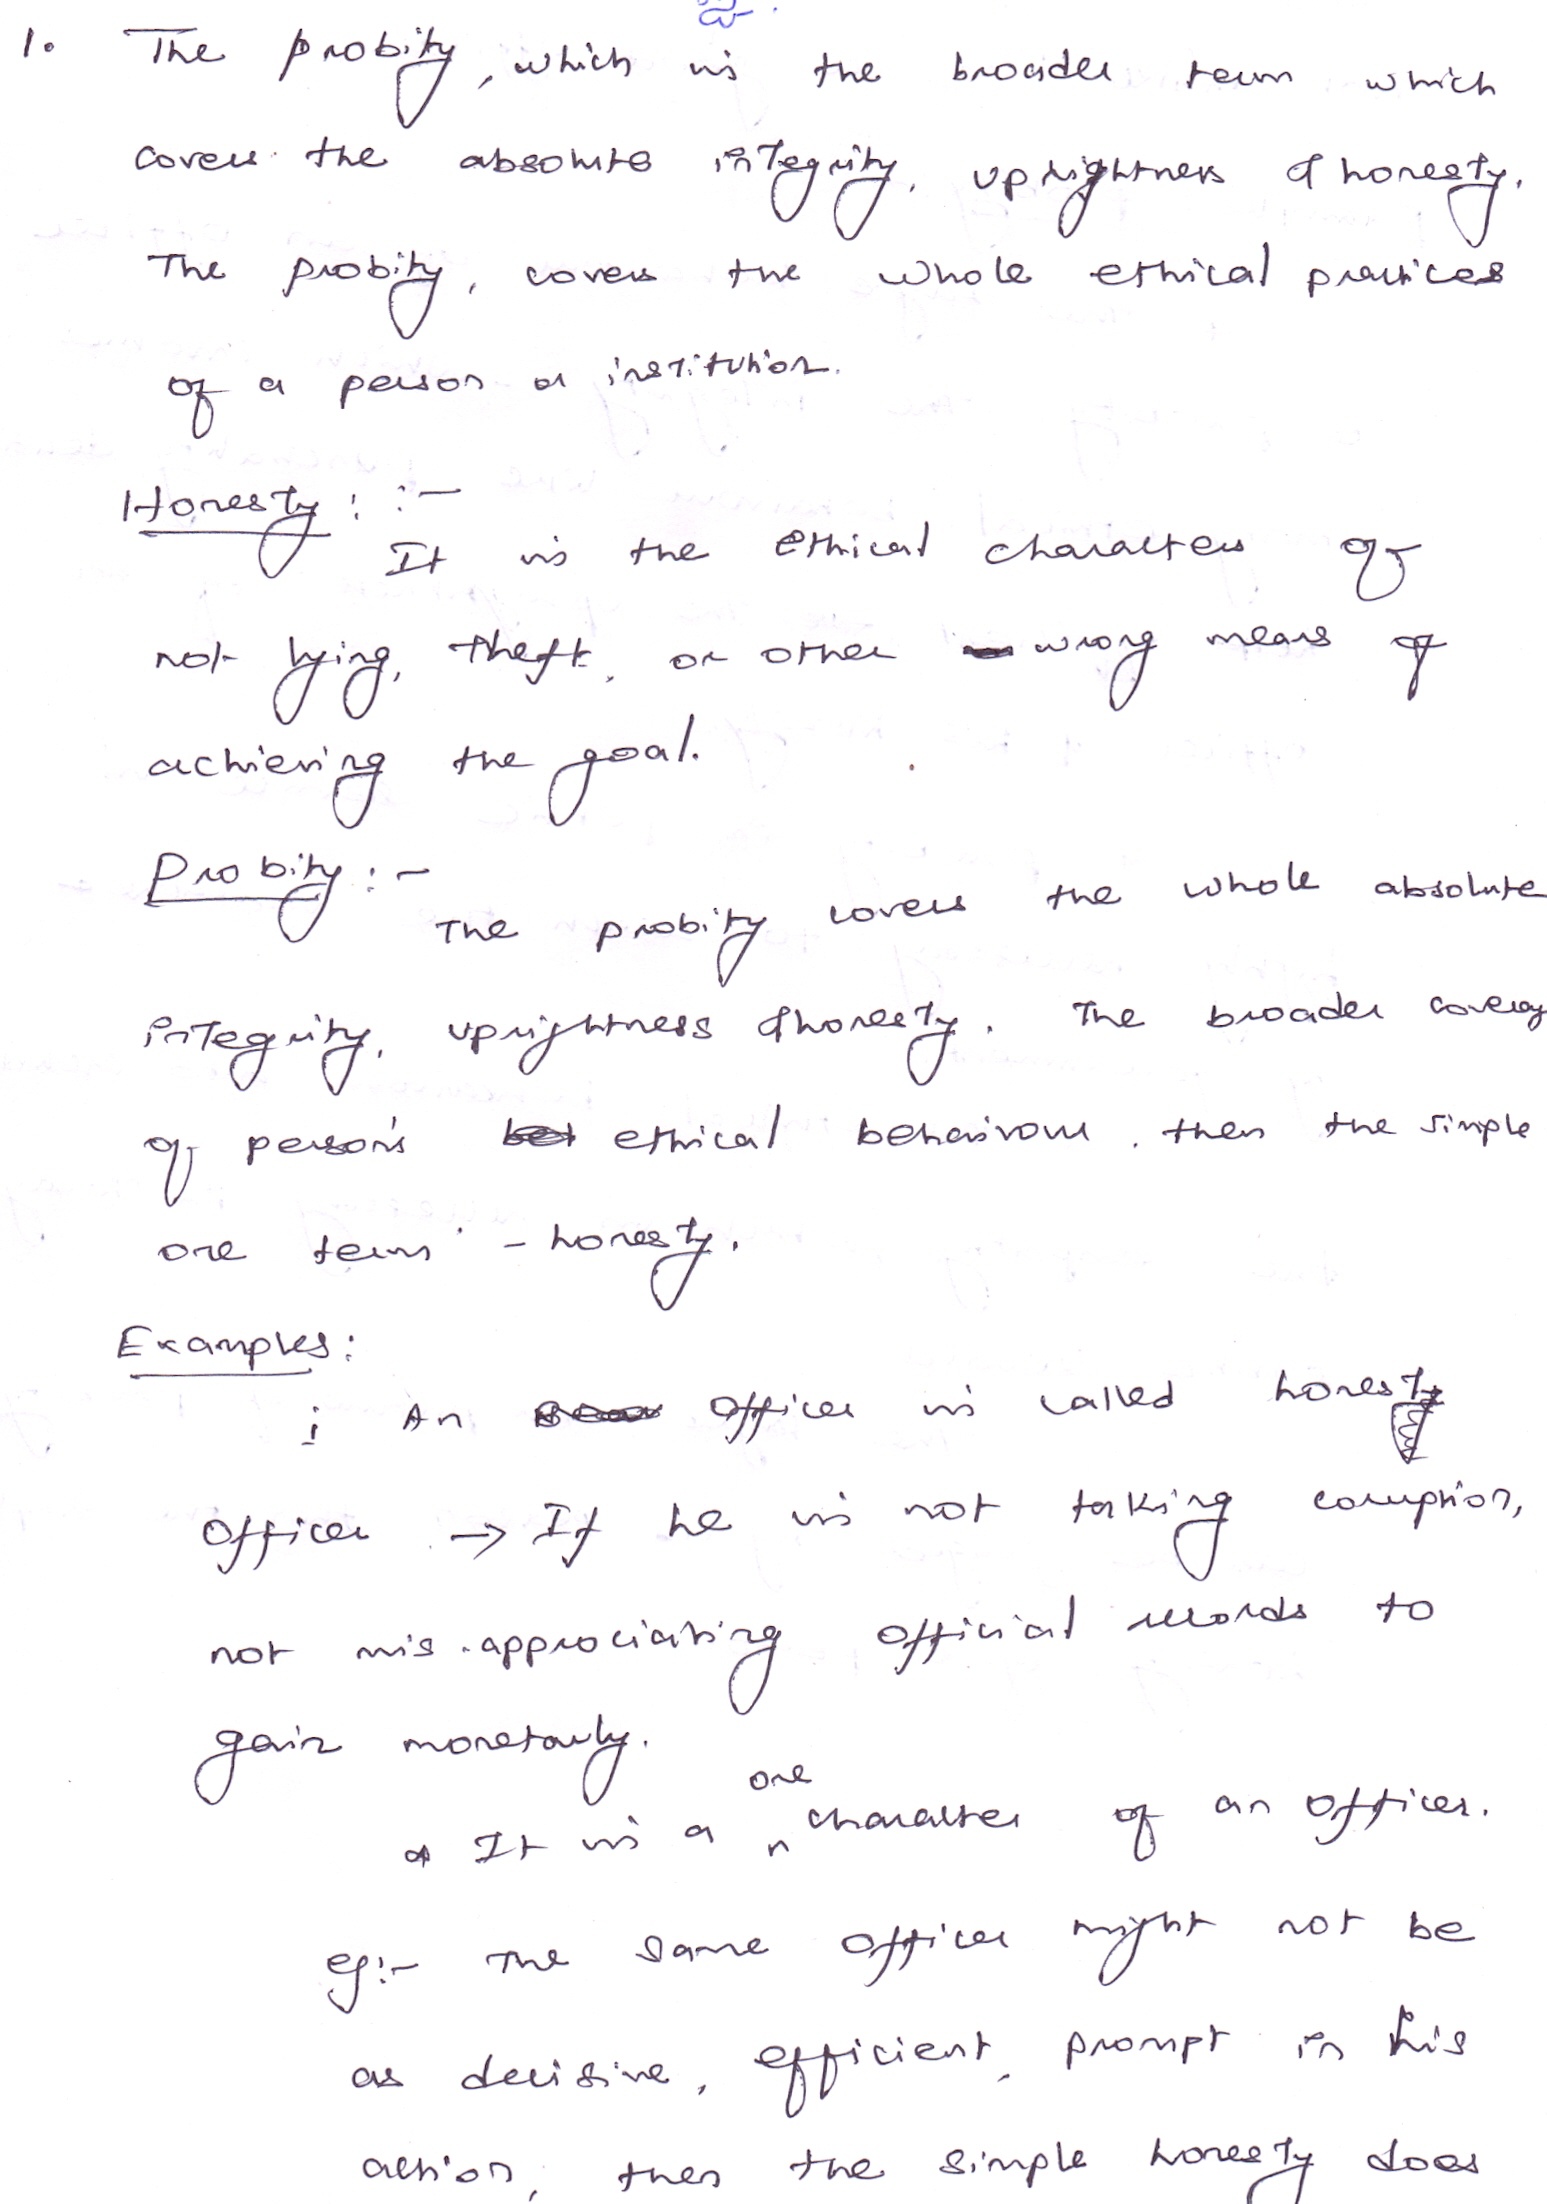 1. The probity, which is the broader term which
covers the absolute integrity, uprightness & honesty.
The probity, covers the whole ethical practices
of a person or institution.
Honesty: :-
It is the ethical character of
not lying, theft, or other wrong means of
achieving the goal.
Probity :-
The probity covers the whole absolute
integrity, uprightness & honesty. The broader
of person's ethical behaviour, then the simple
one term - honesty.
Examples:
i An officer is called honest
officer → If he is not taking corruption,
not mis-approciating official records to
gain monetarly.
It is a one character of an officer.
eg:- The same officer might not be
as decisive, efficient, prompt in his
action, then the simple honesty does